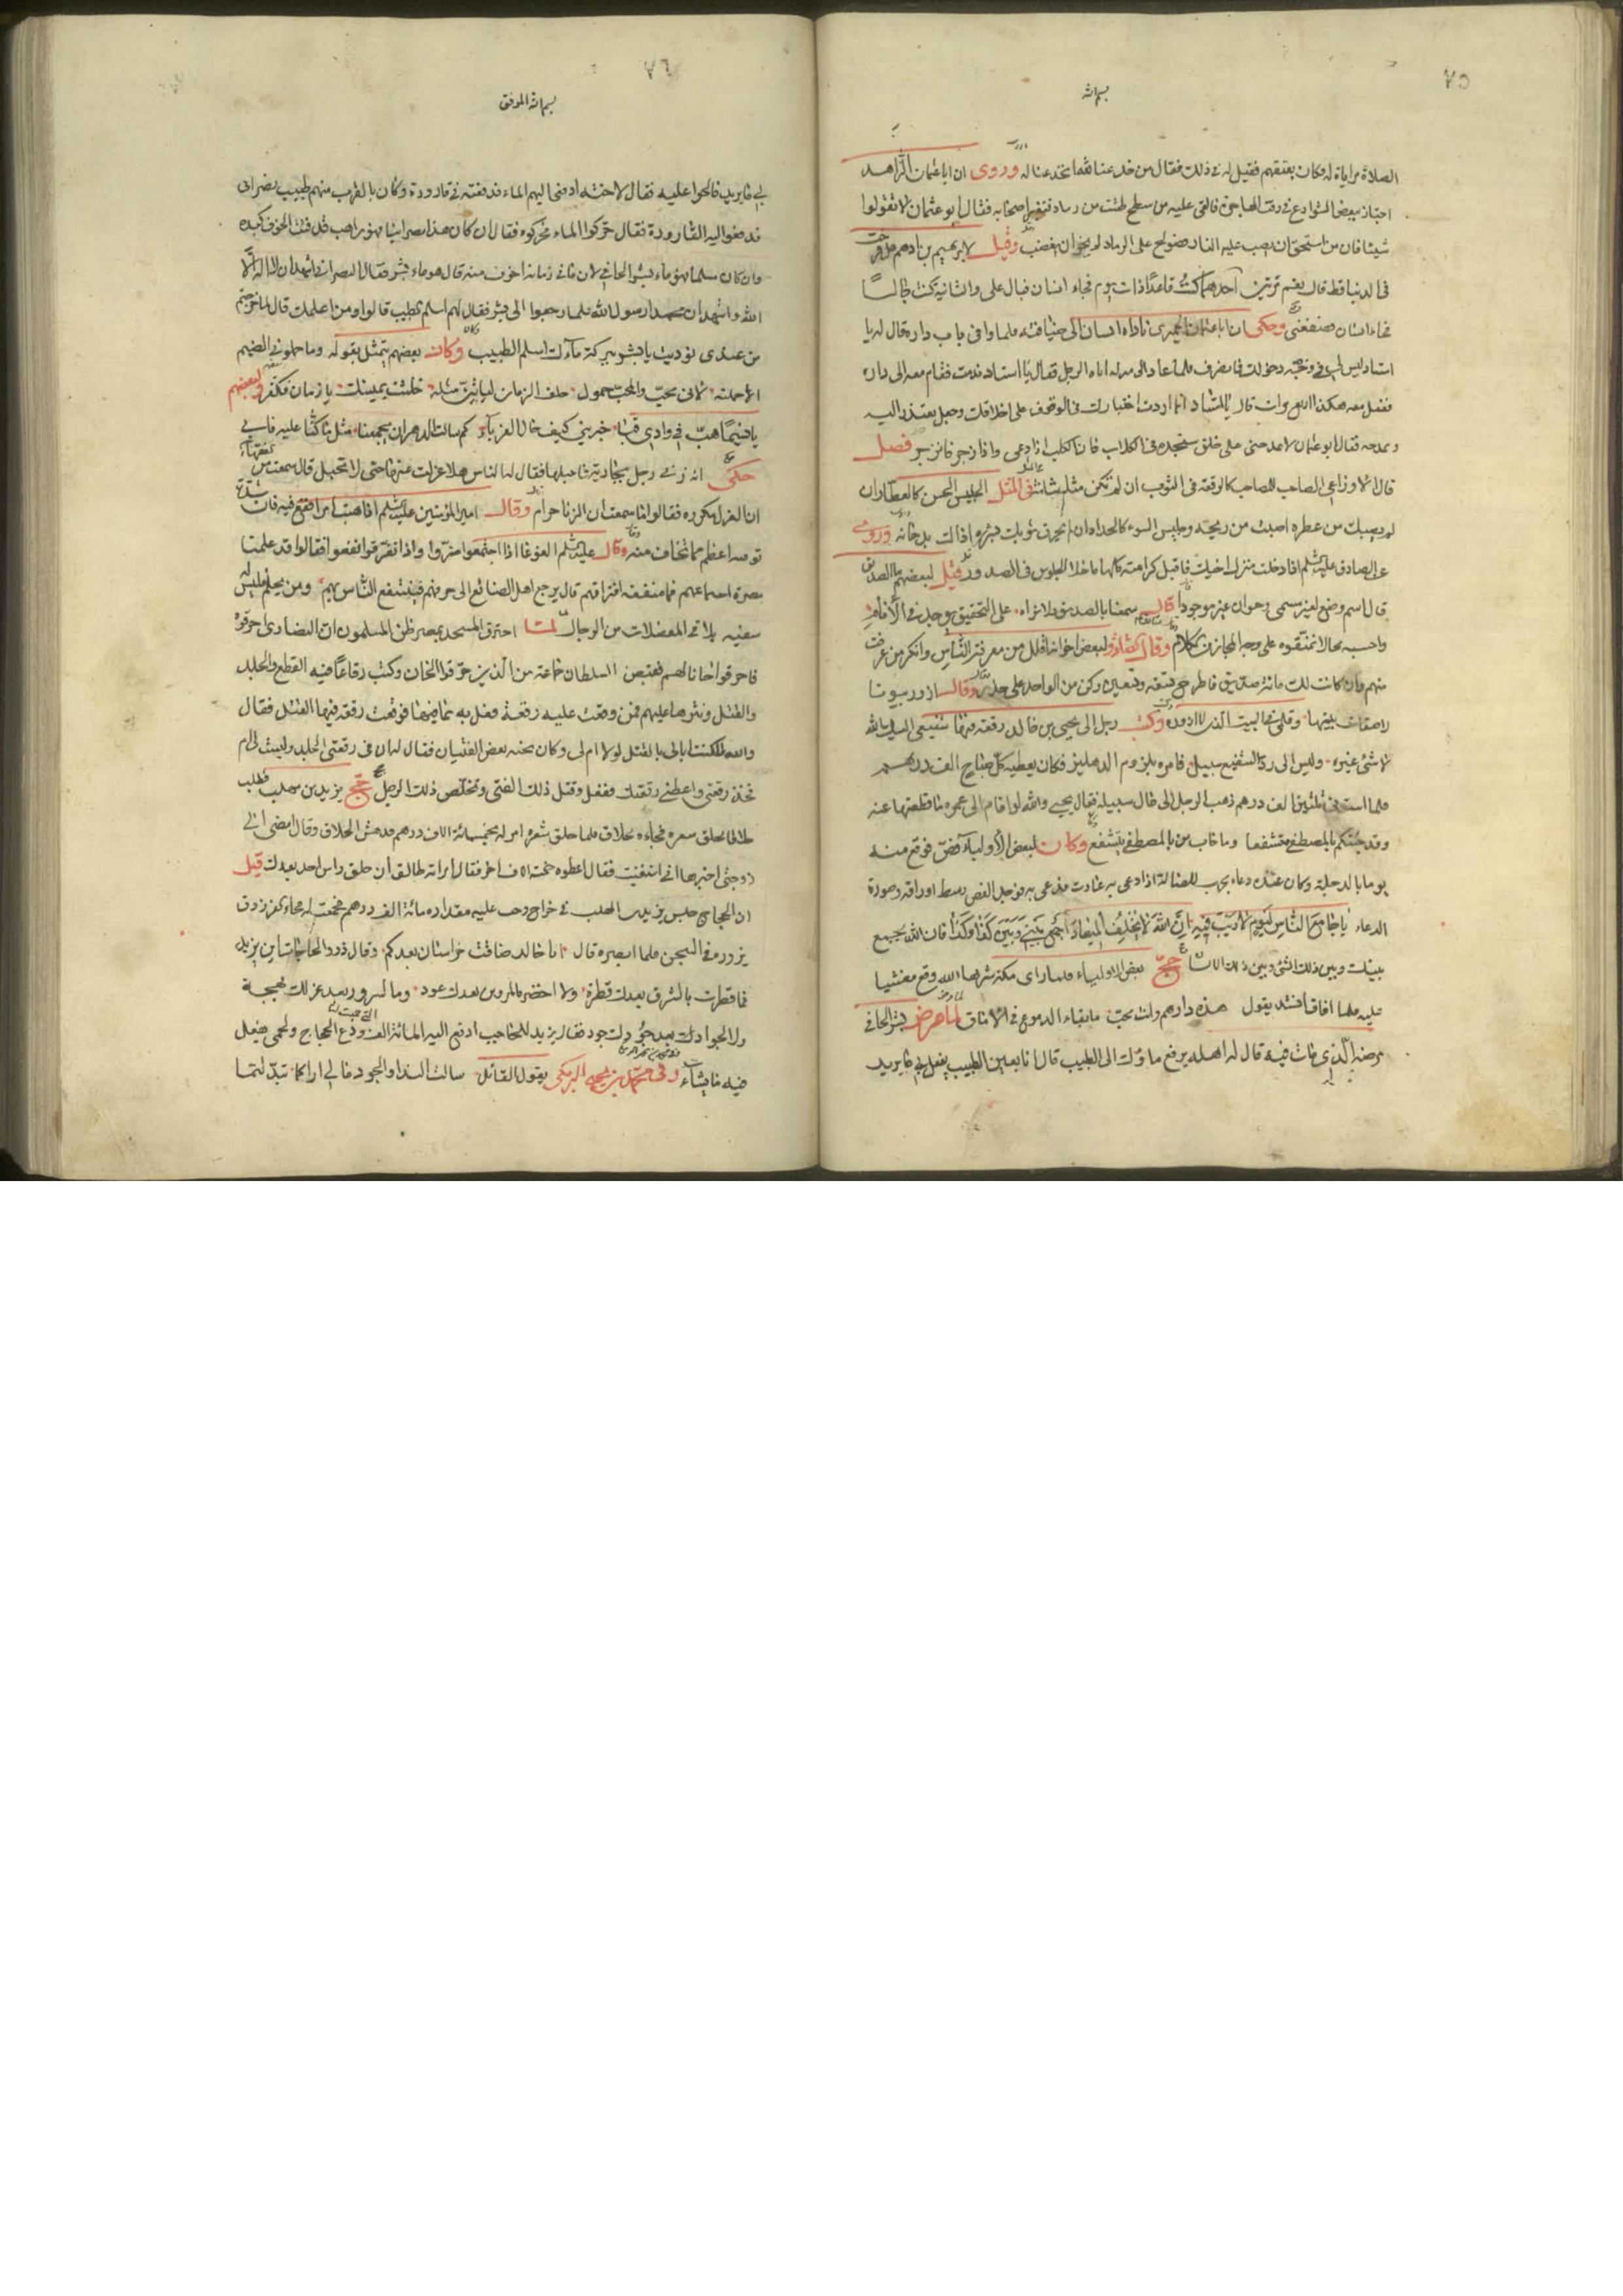 ٧٥
بسم الله
الصلاة مراياة له وكان يعتقهم فقيل له في ذلك فقال من خدعنا لله انخدعنا له وروى ان ابا عثمان الزاهد
اجتاز ببعض الشوارع في وقت الهاجرة فالقى عليه من سطح طشت من رماد فتغير اصحابه فقال ابو عثمان لا تقولوا
شيئا فان من استحق ان يصب عليه النار فصولح على الرماد لم يجز ان يغضب وقيل لابرهيم بن ادهم هل فرحت
في الدنيا قط قال نعم مرتين احدهما كنت قاعدا ذات يوم فجاء انسان فبال علي والثانية كنت جالسا
فجاء انسان فصفعني وحكى ان ابا عثمان الحيري ناداه انسان الى ضيافته فلما وافى باب داره قال له يا
استاد ليس لي في وجه دخولك فانصرف فلما عاد الى منزله اتاه الرجل فقال يا استاد ندمت فقام معه الى داره
ففعل معه هكذا اربع مرات قال يا استاد انما اردت اختبارك في الوقوف على اخلاقك وجعل يعتذر اليه
ويمدحه فقال ابو عثمان لا تمدحني على خلق ستجده في الكلاب فان الكلب اذا دعي واذا زجر فانزجر فصل
قال الاوزاعي الصاحب للصاحب كالرقعة في الثوب ان لم تكن مثله شانته في المثل الجليس الحسن كالعطار ان
لم يصبك من عطره اصبت من ريحه وجليس السوء كالحداد ان لم يحرق ثوبك بشرره اذاك بدخانه وروى
عن الصادق عليه السلم اذا دخلت منزل اخيك فاقبل كرامته كلها ما خلا الجلوس في الصدر وقيل لبعضهم ما الصديق
قال اسم وضع لغير مسمى وحيوان غير موجود قال سمعنا بالصديق ولا نراه على التحقيق يوجد في الانام
واحسبه محالا نمقوه على وجه المجاز من الكلام وقال لبعض اخوانه اقلل من معرفة الناس وانكر من عرفت
منهم وان كانت لك مائة صديق فاطرح تسعة وتسعين وكن من الواحد على حذر وقال ازور بيوتا
لاصقات ببيتها وقلبي في البيت الذي لا ازوره وكتب رجل الى يحيى بن خالد رقعة فيها شفيعي اليك الله
لا شيء غيره وليس الى رد الشفيع سبيل فامره بلزوم الدهليز فكان يعطيه كل صباح الف درهم
فلما استوفى ثلثين الف درهم ذهب الرجل الى حال سبيله فقال يحيى والله لو اقام الى عمره ما قطعتها عنه
وقد جئتكم بالمصطفى متشفعا وما خاب من بالمصطفى يتشفع وكان لبعض الاولياء فص فوقع منه
يوما بالدجلة وكان عنده دعاء مجرب للضالة اذا دعي به عادت فدعى به فوجد الفص وسط اوراقه وصورة
الدعاء يا جامع الناس ليوم لا ريب فيه ان الله لا يخلف الميعاد اجمع بيني وبين كذا وكذا فان الله يجمع
بينك وبين ذلك الشيء وبين ذلك الانسان حج بعض الاولياء فلما رأى مكة شرفها الله وقع مغشيا
عليه فلما افاق انشد يقول هذه دارهم وانت محب ما بقاء الدموع في الآماق لما مرض بشر الحافي
مرضه الذي مات فيه قال له اهله يرفع ماؤك الى الطبيب قال انا بعين الطبيب يفعل بي ما يريد
٧٦
بسم الله الموفق
بي ما يريد فالحوا عليه فقال لاخته ادفعي اليهم الماء فدفعته في قارورة وكان بالقرب منهم طبيب نصراني
فدفعوا اليه القارورة فقال حركوا الماء فحركوه فقال ان كان هذا نصرانيا فهو راهب قد فتت الخوف كبده
وان كان مسلما فهو ماء بشر الحافي لان ما في زمانه اخوف منه قال هو ماء بشر فقال النصراني اشهد ان لا اله الا
الله واشهد ان محمدا رسول الله فلما رجعوا الى بشر فقال لهم اسلم الطبيب قالوا ومن اعلمك قال لما خرجتم
من عندي نوديت يا بشر ببركة ماءك اسلم الطبيب وكان بعضهم يتمثل بقوله وما حملوني الضيم
الا حملته لاني محب والمحب حمول حلف الزمان لياتين بمثله حنثت يمينك يا زمان فكفر ولبعضهم
يا نسيما هب في وادي قبا خبريني كيف حال الغرباء كم سالت الدهر ان يجمعنا مثل ما كنا عليه فابى
حكى انه زنى رجل بجارية فاحبلها فقال له الناس هلا عزلت عنها حتى لا تحبل قال سمعت من الفقهاء
ان العزل مكروه فقالوا اما سمعت ان الزنا حرام وقال امير المؤمنين عليه السلم اذا هبت امرا فقع فيه فان شدة
توقيه اعظم مما تخاف منه وقال عليه السلم الغوغا اذا اجتمعوا ضروا واذا تفرقوا نفعوا فقالوا قد علمت
مضرة اجتماعهم فما منفعة افتراقهم قال يرجع اهل الصنائع الى حرفهم فينتفع الناس بهم ومن يحلم وليس له
سفيه يلاقي المعضلات من الرجال لما احترق المسجد بمصر ظن المسلمون ان النصارى احرقوه
فاحرقوا خانا لهم فقبض السلطان جماعة من الذين حرقوا الخان وكتب رقاعا فيه القطع والجلد
والقتل ونثرها عليهم فمن وقعت عليه رقعة فعل به ما فيها فوقعت رقعة فيها القتل فقال
والله ما كنت ابالي بالقتل لولا ام لي وكان بجنبه بعض الفتيان فقال له ان في رقعتي الجلد وليست لي ام
فخذ رقعتي واعطني رقعتك ففعل وقتل ذلك الفتى وتخلص ذلك الرجل حج يزيد بن مهلب فطلب
حلاقا يحلق شعره فجاءه بحلاق فلما حلق شعره امر له بخمسائة الاف درهم فدهش الحلاق وقال امضي الى
زوجتي اخبرها اني استغنيت فقال اعطوه خمسة الاف اخر فقال امراته طالق ان حلق راس احد بعدك قيل
ان الحجاج حبس يزيد بن المهلب في خراج وجب عليه مقداره مائة الف درهم فجمعت له فجاء الفرزدق
يزوره في السجن فلما ابصره قال ابا خالد ضاقت خراسان بعدكم وقال ذوو الحاجات اين يزيد
فما قطرت بالشرق بعدك قطرة ولا اخضر بالمروين بعدك عود وما لسرور بعد عزك بهجة
ولا لجواد بعد جودك جود فقال يزيد للحاجب ادفع اليه المائة الف التي جمعت لنا ودع الحجاج ولحمي يفعل
فيه ما يشاء وفي محمد بن يحيى البرمكي يقول القائل سالت الندا والجود ما لي اراكما تبدلتما